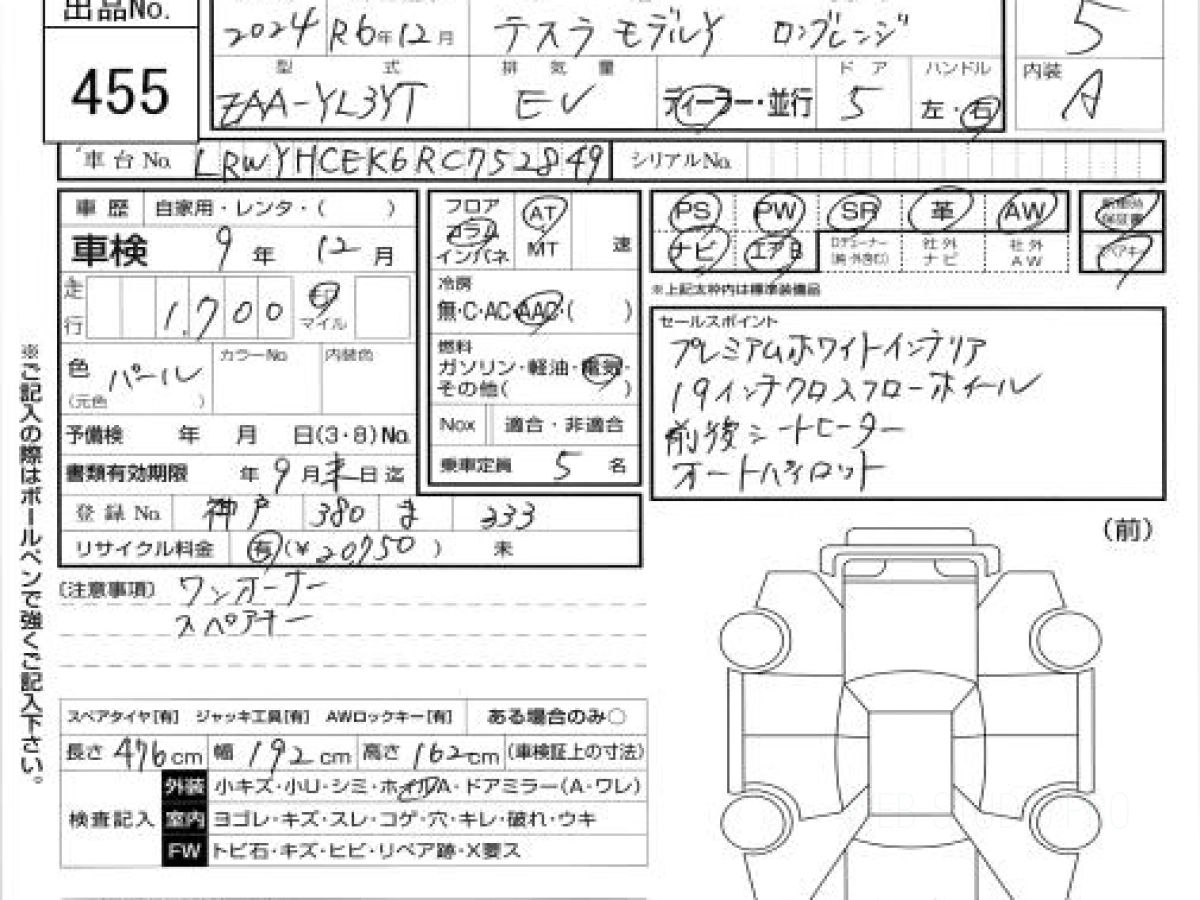 出品No.
455
2024 R6年12月 テスラ モデルY ロングレンジ 5
型式 排気量 ドア ハンドル 内装
ZAA-YL3YT EV ディーラー・並行 5 左・右 A
車台No. LRWYHCEK6RC752849 シリアルNo.
車歴 自家用・レンタ・( )
車検 9年 12月
走行 1,700 マイル
色 パール カラーNo. 内装色
(元色 )
予備検 年 月 日(3・8)No.
書類有効期限 年 9月末日迄
登録No. 神戸 380 ま 333
リサイクル料金 有(¥20,750) 未
フロア
コラム
インパネ
AT
MT
速
冷房
無・C・AC・AAC・( )
燃料
ガソリン・軽油・電気・
その他( )
Nox 適合・非適合
乗車定員 5 名
PS PW SR 革 AW 保証書
ナビ エアB 社外ナビ 社外AW スペアキー
※上記太枠内は標準装備品
セールスポイント
プレミアムホワイトインテリア
19インチクロスフローホイール
前後シートヒーター
オートパイロット
(前)
(注意事項) ワンオーナー
スペアキー
スペアタイヤ[有] ジャッキ工具[有] AWロックキー[有] ある場合のみ〇
長さ 476cm 幅 192cm 高さ 162cm (車検証上の寸法)
検査記入
外装 小キズ・小U・シミ・ホイルA・ドアミラー(A・ワレ)
室内 ヨゴレ・キズ・スレ・コゲ・穴・キレ・破れ・ウキ
FW トビ石・キズ・ヒビ・リペア跡・X要ス
※ご記入の際はボールペンで強くご記入下さい。